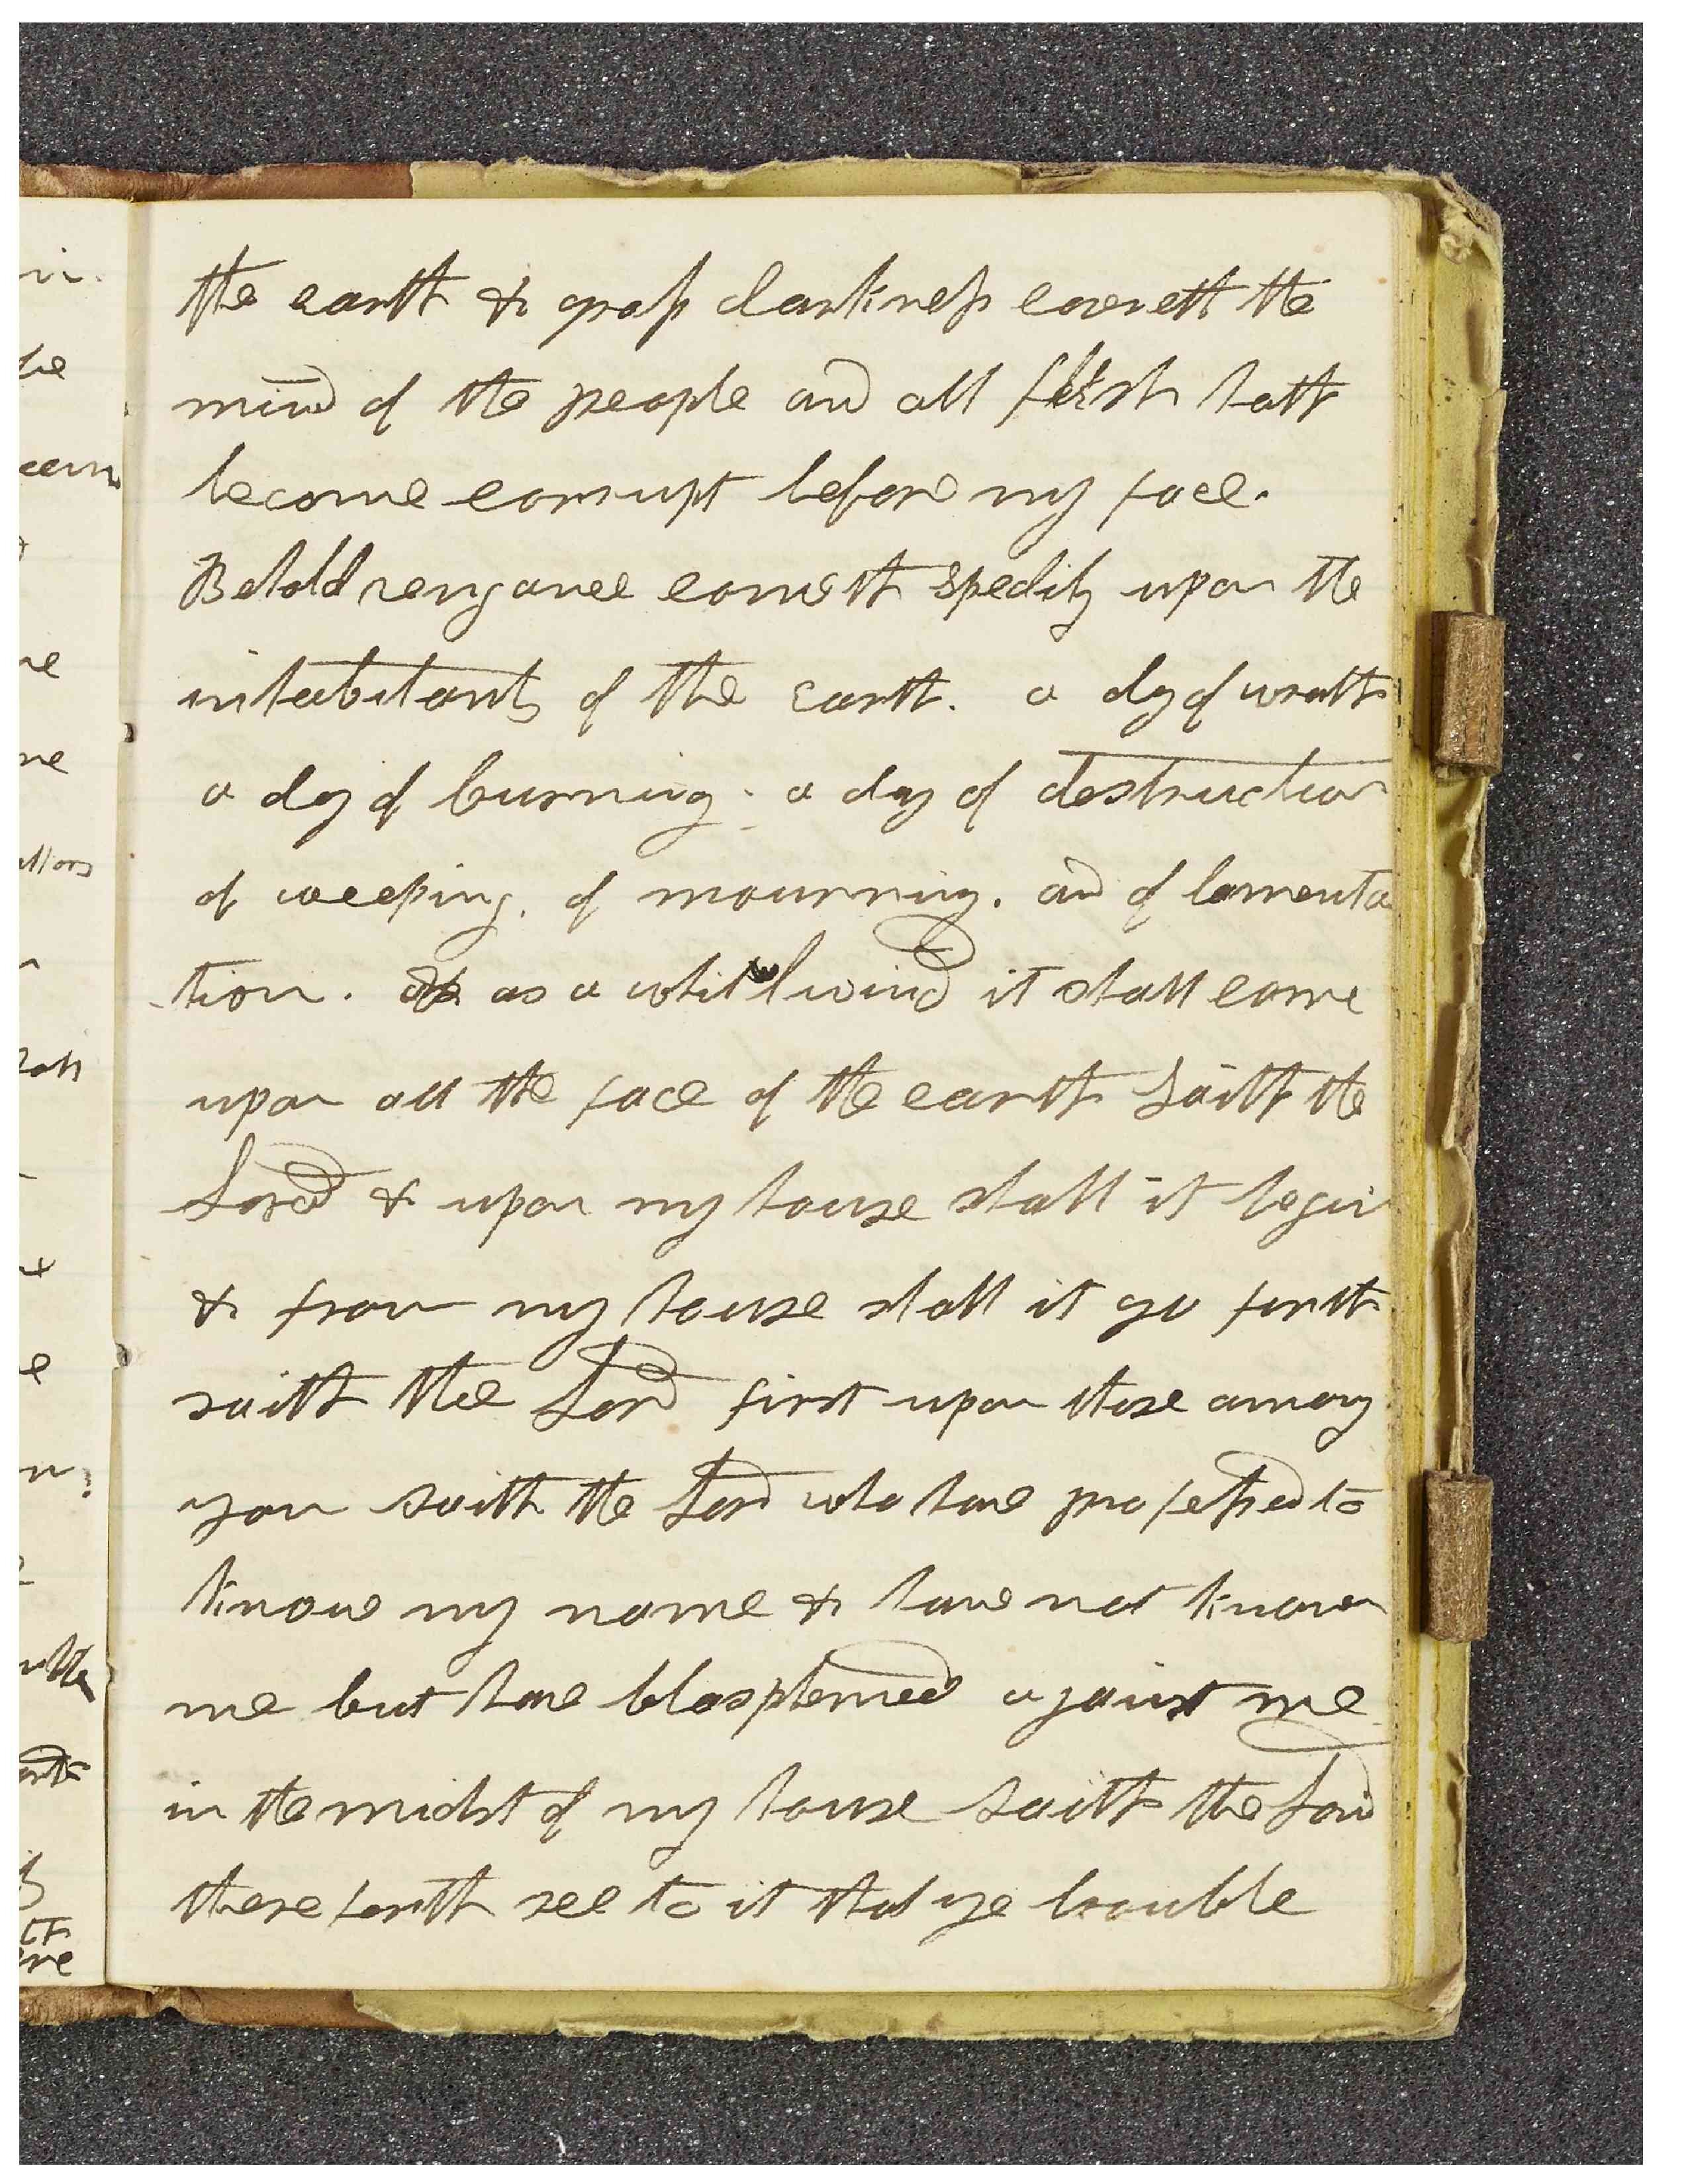 the earth & gross darkness covereth the
mind of the people and all flesh hath
become corrupt before my face.
Behold vengance cometh spedily upon the
inhabitants of the earth. a day of wrath
a day of burning. a day of destruction
of weeping. of mourning. and of lamenta
tion. as a whirlwind it shall come
upon all the face of the earth saith the
Lord & upon my house shall it begin
& from my house shall it go forth
saith the Lord first upon those among
you saith the Lord who have professed to
know my name & have not known
me but have blasphemed against me
in the midst of my house saith the Lord
therefore see to it that ye trouble